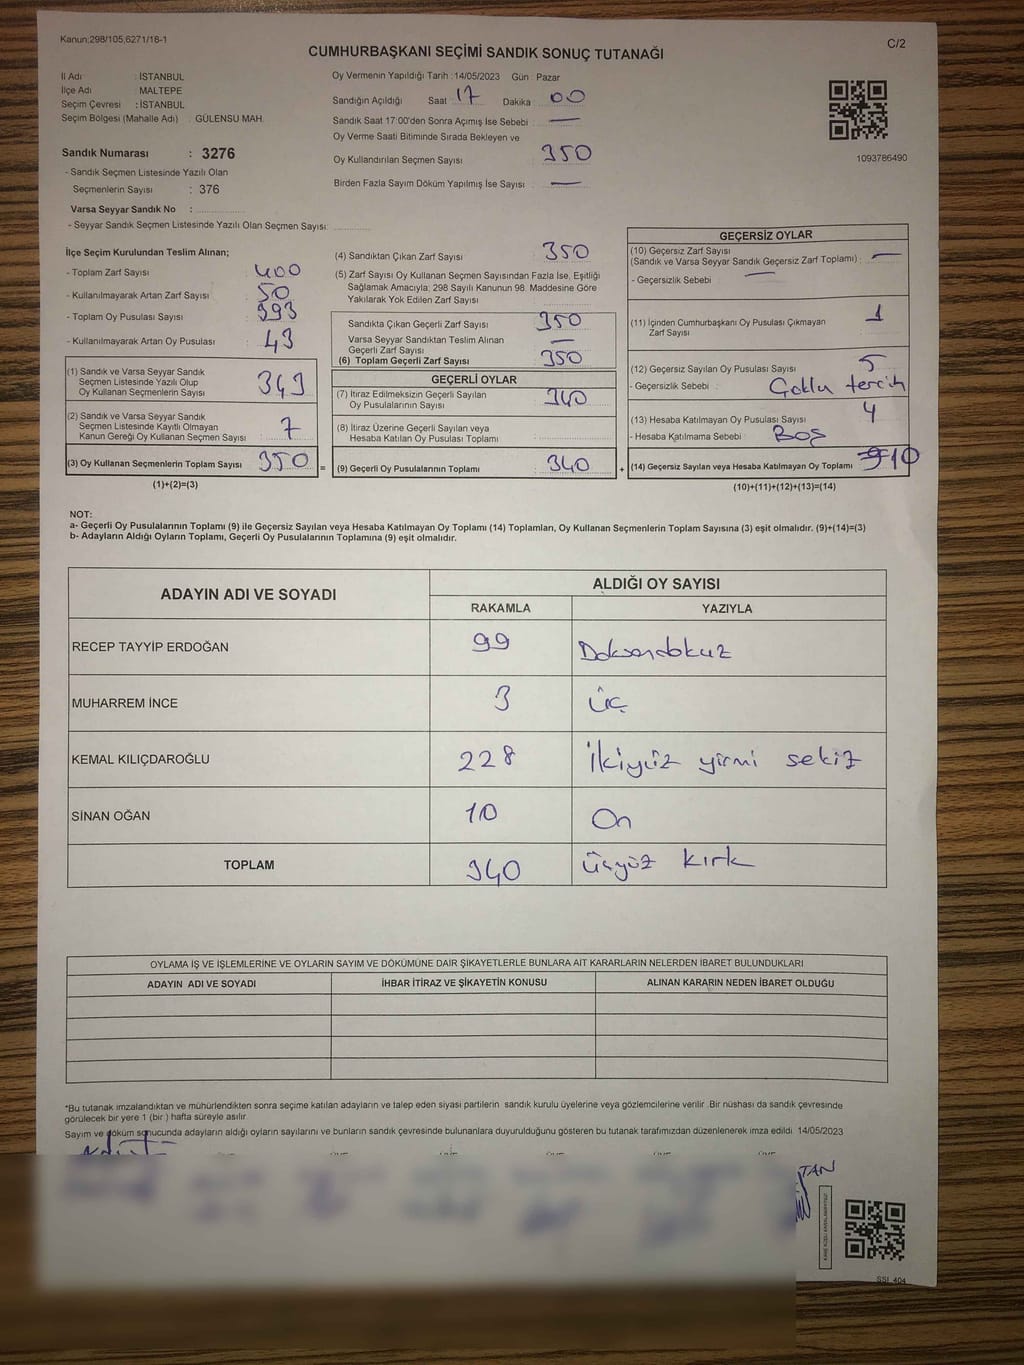 Kanun:298/105,6271/18-1
C/2
CUMHURBAŞKANI SEÇİMİ SANDIK SONUÇ TUTANAĞI
İl Adı : İSTANBUL
İlçe Adı : MALTEPE
Seçim Çevresi : İSTANBUL
Seçim Bölgesi (Mahalle Adı) : GÜLENSU MAH.
Sandık Numarası : 3276
- Sandık Seçmen Listesinde Yazılı Olan
Seçmenlerin Sayısı : 376
Varsa Seyyar Sandık No :
- Seyyar Sandık Seçmen Listesinde Yazılı Olan Seçmen Sayısı:
Oy Vermenin Yapıldığı Tarih :14/05/2023 Gün : Pazar
Sandığın Açıldığı Saat : 17 Dakika : 00
Sandık Saat 17:00'den Sonra Açımış İse Sebebi : —
Oy Verme Saati Bitiminde Sırada Bekleyen ve
Oy Kullandırılan Seçmen Sayısı : 350
Birden Fazla Sayım Döküm Yapılmış İse Sayısı : —
1093786490
İlçe Seçim Kurulundan Teslim Alınan;
- Toplam Zarf Sayısı : 400
- Kullanılmayarak Artan Zarf Sayısı : 50
- Toplam Oy Pusulası Sayısı : 393
- Kullanılmayarak Artan Oy Pusulası : 43
(1) Sandık ve Varsa Seyyar Sandık
Seçmen Listesinde Yazılı Olup
Oy Kullanan Seçmenlerin Sayısı : 343
(2) Sandık ve Varsa Seyyar Sandık
Seçmen Listesinde Kayıtlı Olmayan
Kanun Gereği Oy Kullanan Seçmen Sayısı : 7
(3) Oy Kullanan Seçmenlerin Toplam Sayısı : 350 =
(1)+(2)=(3)
(4) Sandıktan Çıkan Zarf Sayısı : 350
(5) Zarf Sayısı Oy Kullanan Seçmen Sayısından Fazla İse, Eşitliği
Sağlamak Amacıyla; 298 Sayılı Kanunun 98. Maddesine Göre
Yakılarak Yok Edilen Zarf Sayısı :
Sandıkta Çıkan Geçerli Zarf Sayısı : 350
Varsa Seyyar Sandıktan Teslim Alınan
Geçerli Zarf Sayısı : —
(6) Toplam Geçerli Zarf Sayısı : 350
GEÇERLİ OYLAR
(7) İtiraz Edilmeksizin Geçerli Sayılan
Oy Pusulalarının Sayısı : 340
(8) İtiraz Üzerine Geçerli Sayılan veya
Hesaba Katılan Oy Pusulası Toplamı :
(9) Geçerli Oy Pusulalarının Toplamı : 340 +
GEÇERSİZ OYLAR
(10) Geçersiz Zarf Sayısı
(Sandık ve Varsa Seyyar Sandık Geçersiz Zarf Toplamı) : —
- Geçersizlik Sebebi : —
(11) İçinden Cumhurbaşkanı Oy Pusulası Çıkmayan
Zarf Sayısı : 1
(12) Geçersiz Sayılan Oy Pusulası Sayısı : 5
- Geçersizlik Sebebi : Çoklu tercih
(13) Hesaba Katılmayan Oy Pusulası Sayısı : 4
- Hesaba Katılmama Sebebi : Boş
(14) Geçersiz Sayılan veya Hesaba Katılmayan Oy Toplamı : 10
(10)+(11)+(12)+(13)=(14)
NOT:
a- Geçerli Oy Pusulalarının Toplamı (9) ile Geçersiz Sayılan veya Hesaba Katılmayan Oy Toplamı (14) Toplamları, Oy Kullanan Seçmenlerin Toplam Sayısına (3) eşit olmalıdır. (9)+(14)=(3)
b- Adayların Aldığı Oyların Toplamı, Geçerli Oy Pusulalarının Toplamına (9) eşit olmalıdır.
ADAYIN ADI VE SOYADI ALDIĞI OY SAYISI
RAKAMLA YAZIYLA
RECEP TAYYİP ERDOĞAN 99 Doksandokuz
MUHARREM İNCE 3 üç
KEMAL KILIÇDAROĞLU 228 İkiyüz yirmi sekiz
SİNAN OĞAN 10 On
TOPLAM 340 üçyüz kırk
OYLAMA İŞ VE İŞLEMLERİNE VE OYLARIN SAYIM VE DÖKÜMÜNE DAİR ŞİKAYETLERLE BUNLARA AİT KARARLARIN NELERDEN İBARET BULUNDUKLARI
ADAYIN ADI VE SOYADI İHBAR İTİRAZ VE ŞİKAYETİN KONUSU ALINAN KARARIN NEDEN İBARET OLDUĞU
*Bu tutanak imzalandıktan ve mühürlendikten sonra seçime katılan adayların ve talep eden siyasi partilerin sandık kurulu üyelerine veya gözlemcilerine verilir .Bir nüshası da sandık çevresinde
görülecek bir yere 1 (bir ) hafta süreyle asılır.
Sayım ve döküm sonucunda adayların aldığı oyların sayılarını ve bunların sandık çevresinde bulunanlara duyurulduğunu gösteren bu tutanak tarafımızdan düzenlenerek imza edildi. 14/05/2023
TAN
SSI_404